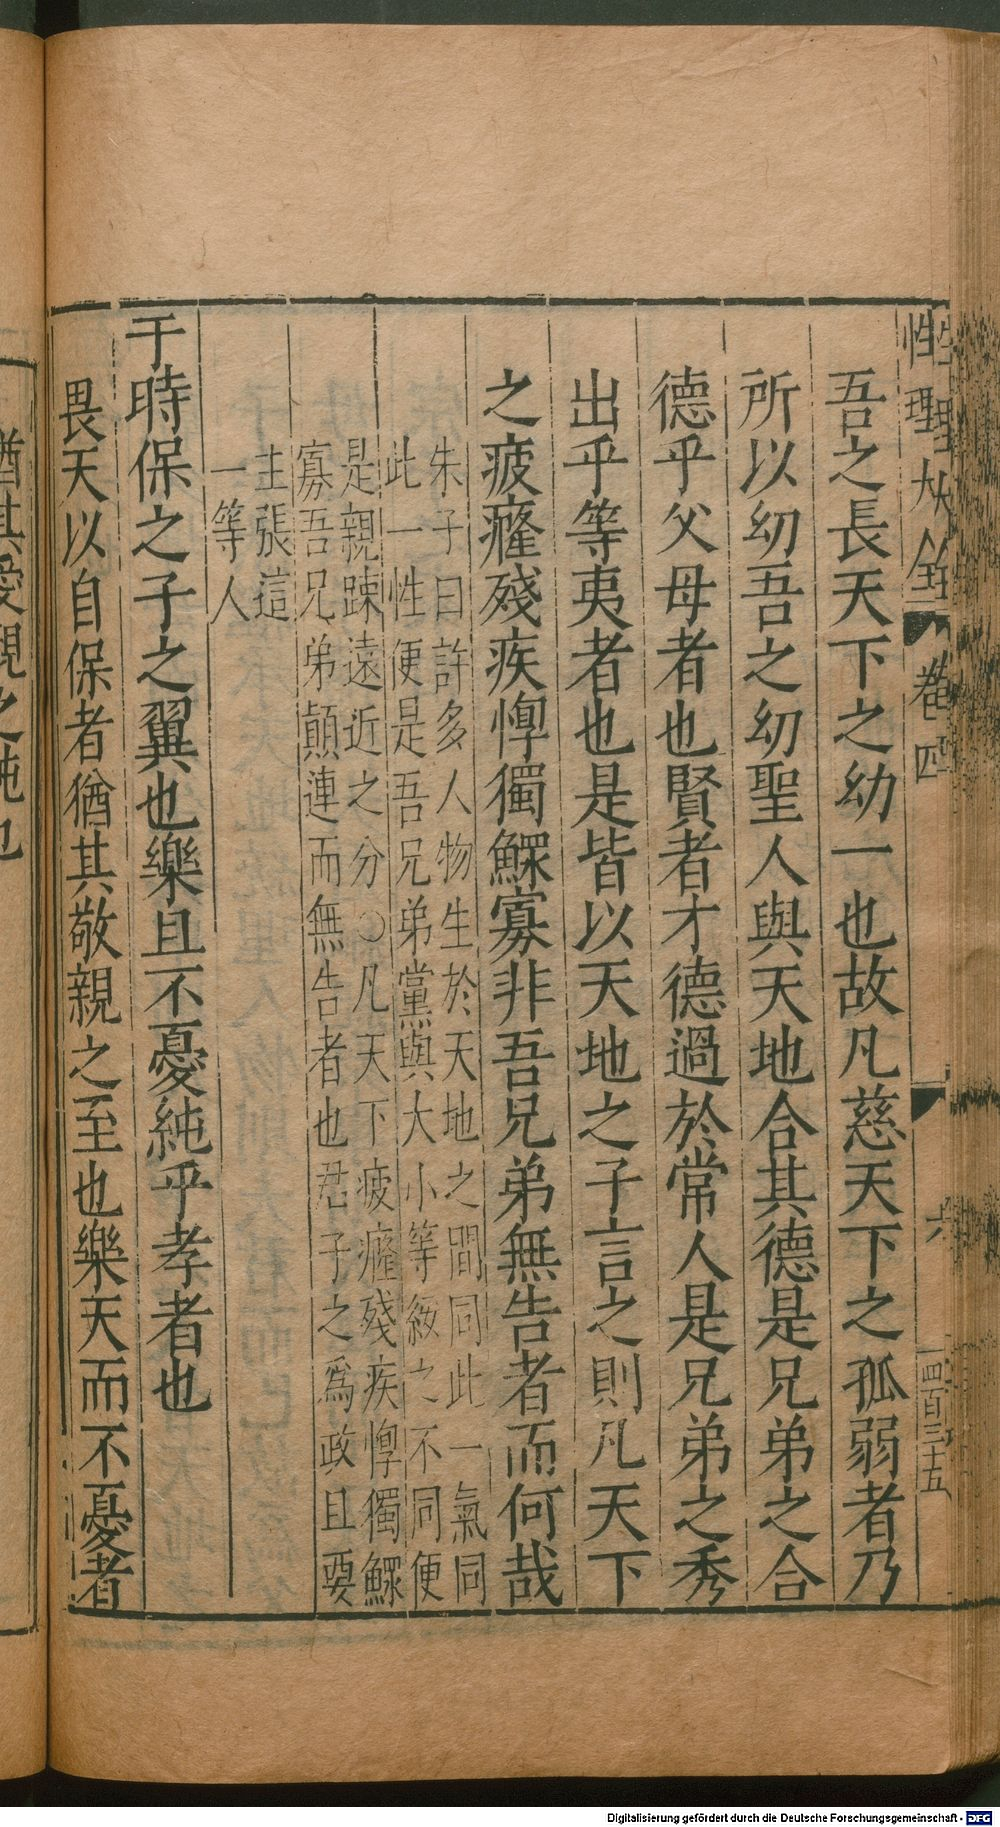 性理大全 卷四 六 四百三十五
吾之長天下之幼一也故凡慈天下之孤弱者乃
所以幼吾之幼聖人與天地合其德是兄弟之合
德乎父母者也賢者才德過於常人是兄弟之秀
出乎等夷者也是皆以天地之子言之則凡天下
之疲癃殘疾惸獨鰥寡非吾兄弟無告者而何哉
朱子曰許多人物生於天地之間同此一氣同
此一性便是吾兄弟黨與大小等級之不同便
是親踈遠近之分○凡天下疲癃殘疾惸獨鰥
寡吾兄弟顛連而無告者也君子之爲政且要
主張這
一等人
于時保之子之翼也樂且不憂純乎孝者也
畏天以自保者猶其敬親之至也樂天而不憂者
猶其愛親之純也
Digitalisierung gefördert durch die Deutsche Forschungsgemeinschaft - DFG